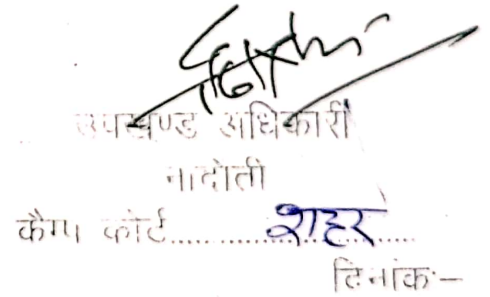 उपखण्ड अधिकारी
नादोती
कैम्प कोर्ट.....शहर.....
दिनांक:-